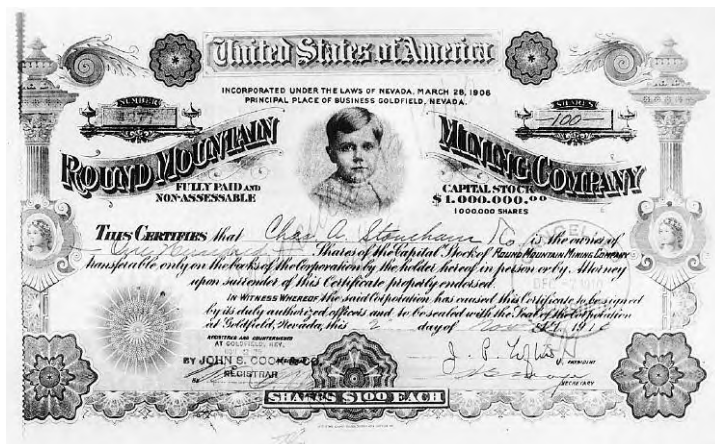 United States of America
INCORPORATED UNDER THE LAWS OF NEVADA, MARCH 28, 1906
PRINCIPAL PLACE OF BUSINESS GOLDFIELD, NEVADA.
NUMBER
SHARES
100
ROUND MOUNTAIN MINING COMPANY
FULLY PAID AND
NON-ASSESSABLE
CAPITAL STOCK
$1.000.000.00
1000.000 SHARES
THIS CERTIFIES that Chas. A. Stoneham & Co is the owner of
One Hundred Shares of the Capital Stock of ROUND MOUNTAIN MINING COMPANY
transferable only on the books of the Corporation by the holder hereof in person or by Attorney
upon surrender of this Certificate properly endorsed.
IN WITNESS WHEREOF the said Corporation has caused this Certificate to be signed
by its duly authorized officers and to be sealed with the Seal of the Corporation
at Goldfield, Nevada, this 2 day of Nov A.D. 1910
REGISTERED AND COUNTERSIGNED
AT GOLDFIELD, NEV.
BY JOHN S. COOK & CO.
REGISTRAR
By
PRESIDENT
SECRETARY
SHARES $1.00 EACH